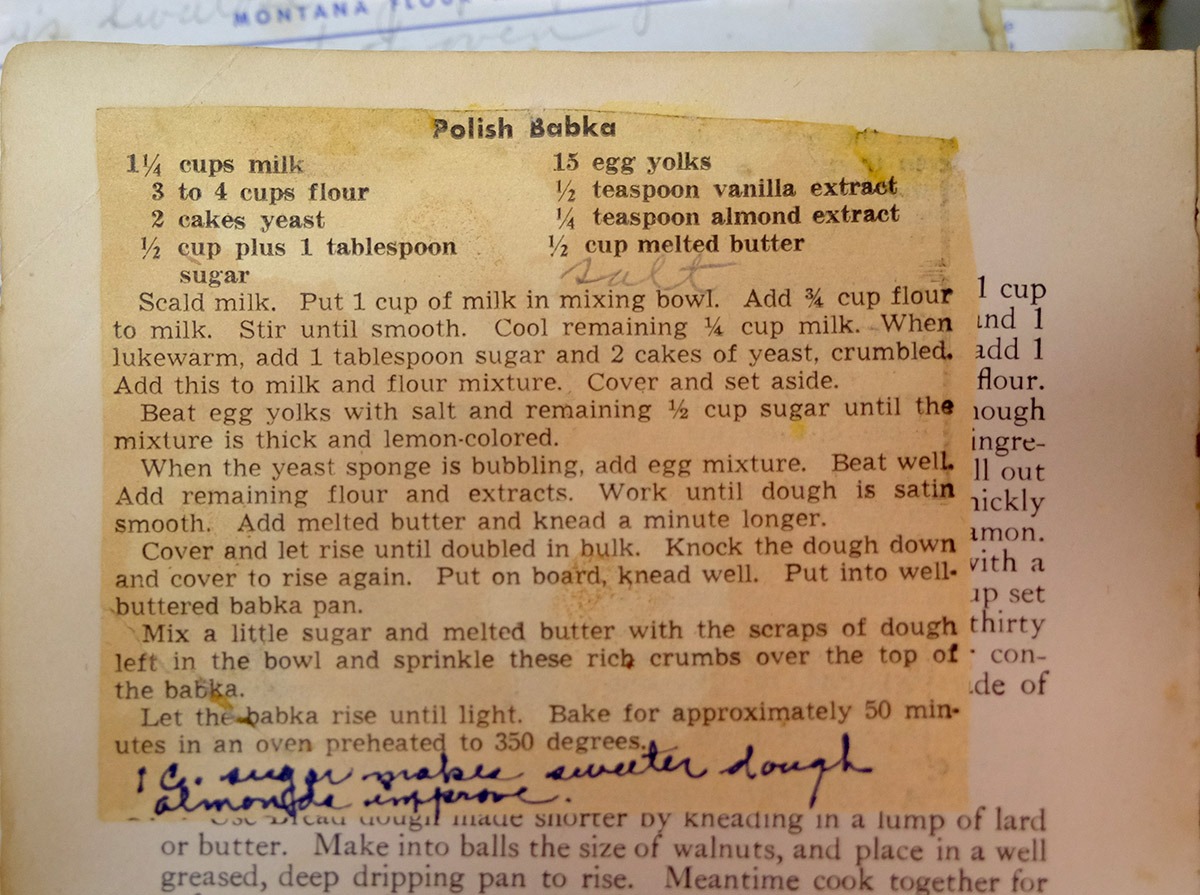 MONTANA FLOUR
oven
Polish Babka
1¼ cups milk
3 to 4 cups flour
2 cakes yeast
½ cup plus 1 tablespoon
sugar
15 egg yolks
½ teaspoon vanilla extract
¼ teaspoon almond extract
½ cup melted butter
salt
Scald milk. Put 1 cup of milk in mixing bowl. Add ¾ cup flour
to milk. Stir until smooth. Cool remaining ¼ cup milk. When
lukewarm, add 1 tablespoon sugar and 2 cakes of yeast, crumbled.
Add this to milk and flour mixture. Cover and set aside.
Beat egg yolks with salt and remaining ½ cup sugar until the
mixture is thick and lemon-colored.
When the yeast sponge is bubbling, add egg mixture. Beat well.
Add remaining flour and extracts. Work until dough is satin
smooth. Add melted butter and knead a minute longer.
Cover and let rise until doubled in bulk. Knock the dough down
and cover to rise again. Put on board, knead well. Put into well-
buttered babka pan.
Mix a little sugar and melted butter with the scraps of dough
left in the bowl and sprinkle these rich crumbs over the top of
the babka.
Let the babka rise until light. Bake for approximately 50 min-
utes in an oven preheated to 350 degrees.
1 C. sugar makes sweeter dough
almonds improve.
1 cup
and 1
add 1
flour.
nough
ingre-
ll out
hickly
amon.
with a
up set
thirty
con-
de of
Use Bread dough made shorter by kneading in a lump of lard
or butter. Make into balls the size of walnuts, and place in a well
greased, deep dripping pan to rise. Meantime cook together for